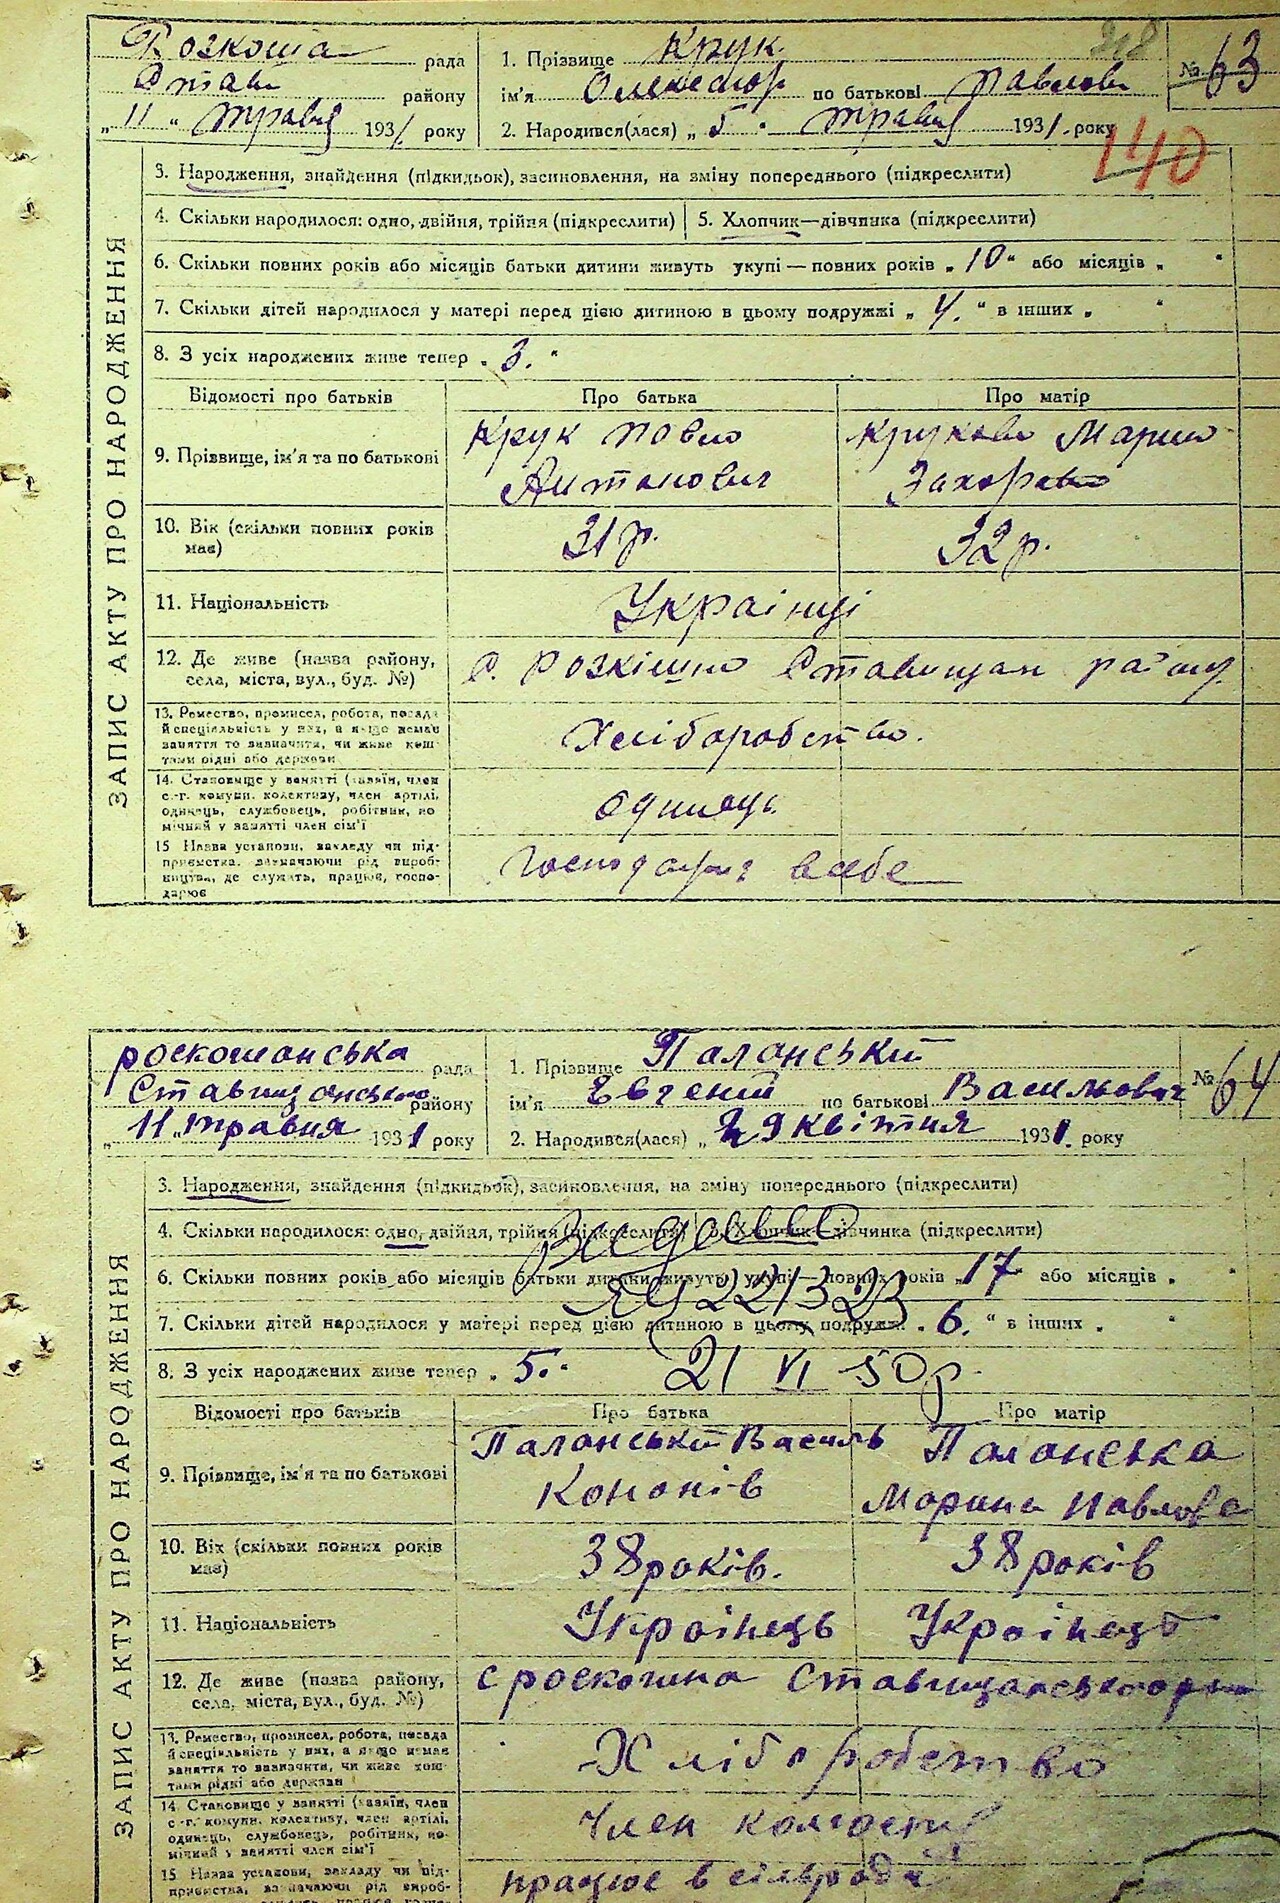 Розкоша рада
Став району
„11" травня 1931. року
1. Прізвище Крук
ім'я Олександр по батькові Павлові
2. Народився(лася) „5" травня 1931. року
318
№ 63
140
ЗАПИС АКТУ ПРО НАРОДЖЕННЯ
3. Народження, знайдення (підкидьок), засиновлення, на зміну попереднього (підкреслити)
4. Скільки народилося: одно, двійня, трійня (підкреслити) 5. Хлопчик—дівчинка (підкреслити)
6. Скільки повних років або місяців батьки дитини живуть укупі — повних років „10" або місяців „ "
7. Скільки дітей народилося у матері перед цією дитиною в цьому подружжі „4." в інших „ "
8. З усіх народжених живе тепер „3."
Відомості про батьків Про батька Про матір
9. Прізвище, ім'я та по батькові
Крук Павло Крукова Марина
Антонович Захорова
10. Вік (скільки повних років має) 31 р. 32 р.
11. Національність Українці
12. Де живе (назва району, села, міста, вул., буд. №) С. Розкішна Ставищан району.
13. Ремество, промисел, робота, посада
й спеціяльність у них, а якщо немає
заняття то визначити, чи живе кош-
тами рідні або держави
Хліборобство.
14. Становище у занятті (хазяїн, член
с.-г. комуни, колективу, член артілі,
одинець, службовець, робітник, по
мічний у занятті член сім'ї
Одинець.
15 Назва установи, закладу чи під-
приємства, зазначаючи рід вироб-
ництва, де служить, працює, госпо-
дарює
Господарює в себе
роскошанська рада
Ставищанського району
„11" травня 1931 року
1. Прізвище Паланський
ім'я Евгеній по батькові Васильович
2. Народився(лася) „29 квітня 1931. року
№ 64
ЗАПИС АКТУ ПРО НАРОДЖЕННЯ
3. Народження, знайдення (підкидьок), засиновлення, на зміну попереднього (підкреслити)
4. Скільки народилося: одно, двійня, трійня (підкреслити) 5. Хлопчик—дівчинка (підкреслити)
6. Скільки повних років або місяців батьки дитини живуть укупі — повних років „17 або місяців „ "
7. Скільки дітей народилося у матері перед цією дитиною в цьому подружжі „6." в інших „ "
8. З усіх народжених живе тепер „5."
221323
21 VI 50 р.
Відомості про батьків Про батька Про матір
9. Прізвище, ім'я та по батькові
Паланський Василь Паланська
Кононів Марина Павлова
10. Вік (скільки повних років має) 38 років. 38 років
11. Національність Українець Українець
12. Де живе (назва району, села, міста, вул., буд. №) с роскошна
13. Ремество, промисел, робота, посада
й спеціяльність у них, а якщо немає
заняття то визначити, чи живе кош-
тами рідні або держави
Хліборобство
14. Становище у занятті (хазяїн, член
с.-г. комуни, колективу, член артілі,
одинець, службовець, робітник, по-
мічний у занятті член сім'ї
Член колгоспу
15 Назва установи, закладу чи під-
приємства, зазначаючи рід вироб-
працює в сільраді